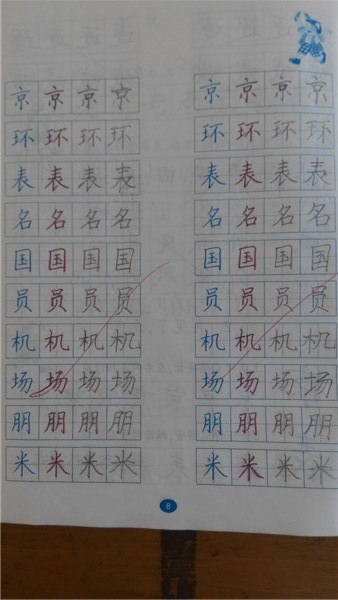 京 京 京 京 京 京 京 京
环 环 环 环 环 环 环 环
表 表 表 表 表 表 表 表
名 名 名 名 名 名 名 名
国 国 国 国 国 国 国 国
员 员 员 员 员 员 员 员
机 机 机 机 机 机 机 机
场 场 场 场 场 场 场 场
朋 朋 朋 朋 朋 朋 朋 朋
米 米 米 米 米 米 米 米
8